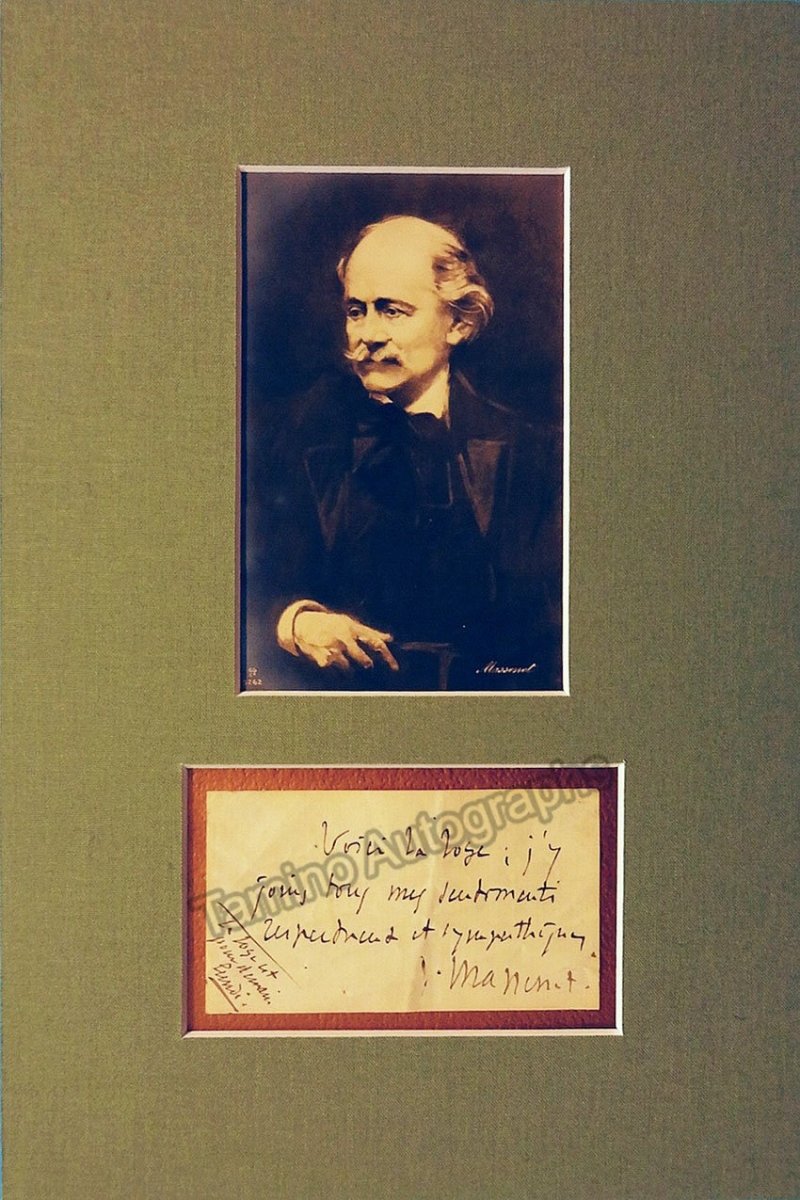 Massenet
5262
Tamino Autographs
Voici la loge ; j'y
joins tous mes sentiments
respectueux et sympathiques.
J. Massenet.
La loge est
pour demain
lundi.